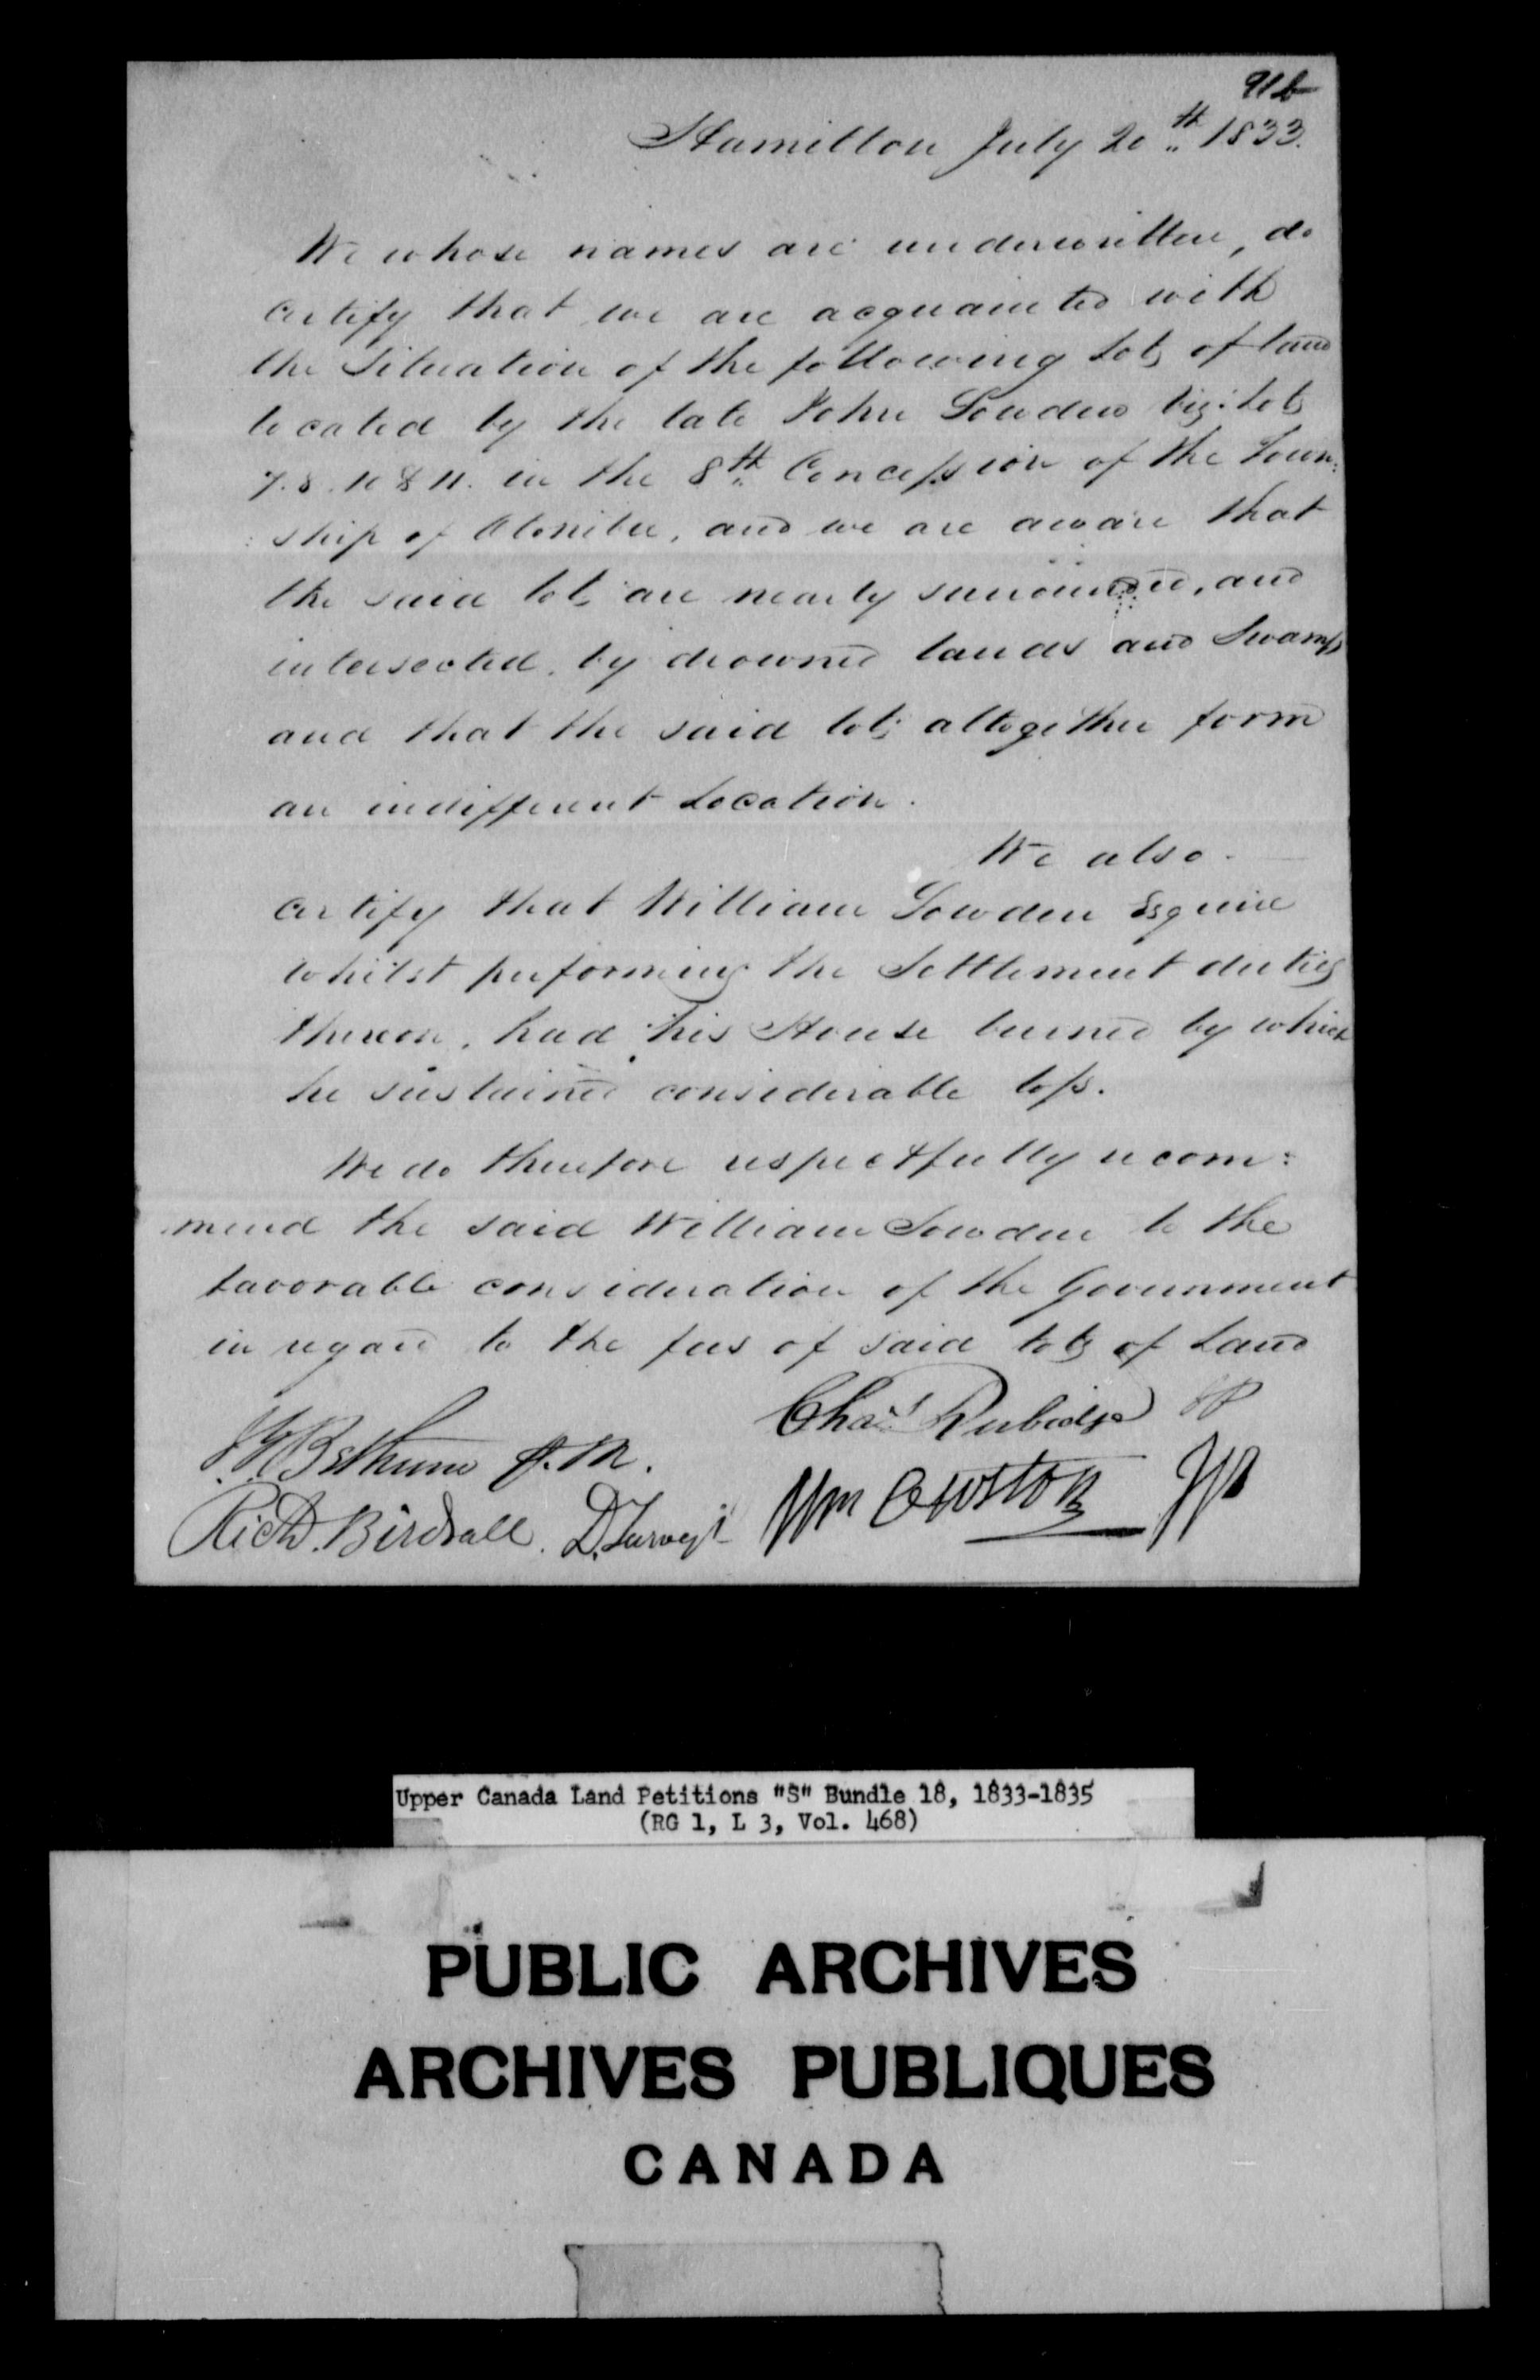 91b
Hamilton July 20th 1833.
We whose names are underwritten, do
certify that we are acquainted with
the Situation of the following Lots of land
located by the late John Sowden viz: Lots
7. 8. 10 & 11. in the 8th Concession of the Town:
:ship of Otonibee, and we are aware that
the said lots are nearly surrounded, and
intersected, by drowned lands and Swamps
and that the said lots altogether form
an indifferent Location.
We also
certify that William Sowden Esquire
whilst performing the Settlement duties
thereon, had his House burned by which
he sustained considerable loss.
We do therefore respectfully recom:
:mend the said William Sowden to the
favorable consideration of the Government
in regard to the fees of said lots of Land
Chas Rubidge JP
J. G. Bethune J.M.
Wm Owston JP
Richd. Birdsall. D. Survey
Upper Canada Land Petitions "S" Bundle 18, 1833-1835
(RG 1, L 3, Vol. 468)
PUBLIC ARCHIVES
ARCHIVES PUBLIQUES
CANADA